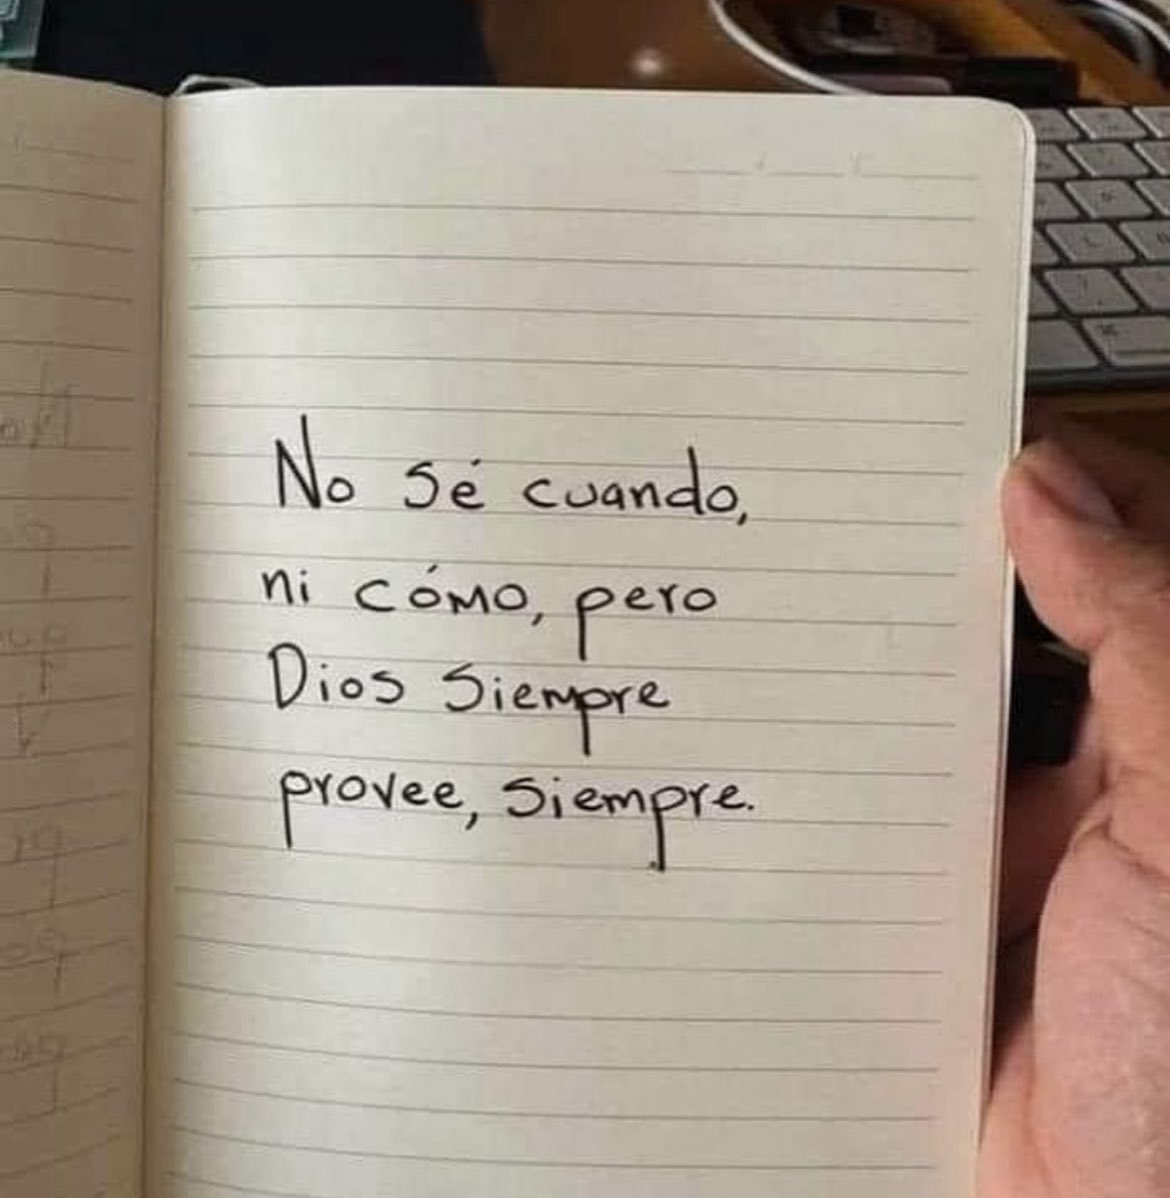 No sé cuando,
ni cómo, pero
Dios siempre
provee, siempre.